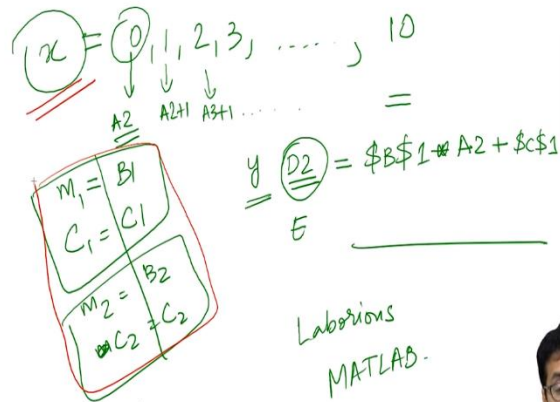 x = 0, 1, 2, 3, ....., 10
A2 A2+1 A3+1 ......
=
y D2 = $B$1 * A2 + $C$1
E
M1 = B1
C1 = C1
M2 = B2
C2 = C2
Laborious
MATLAB.